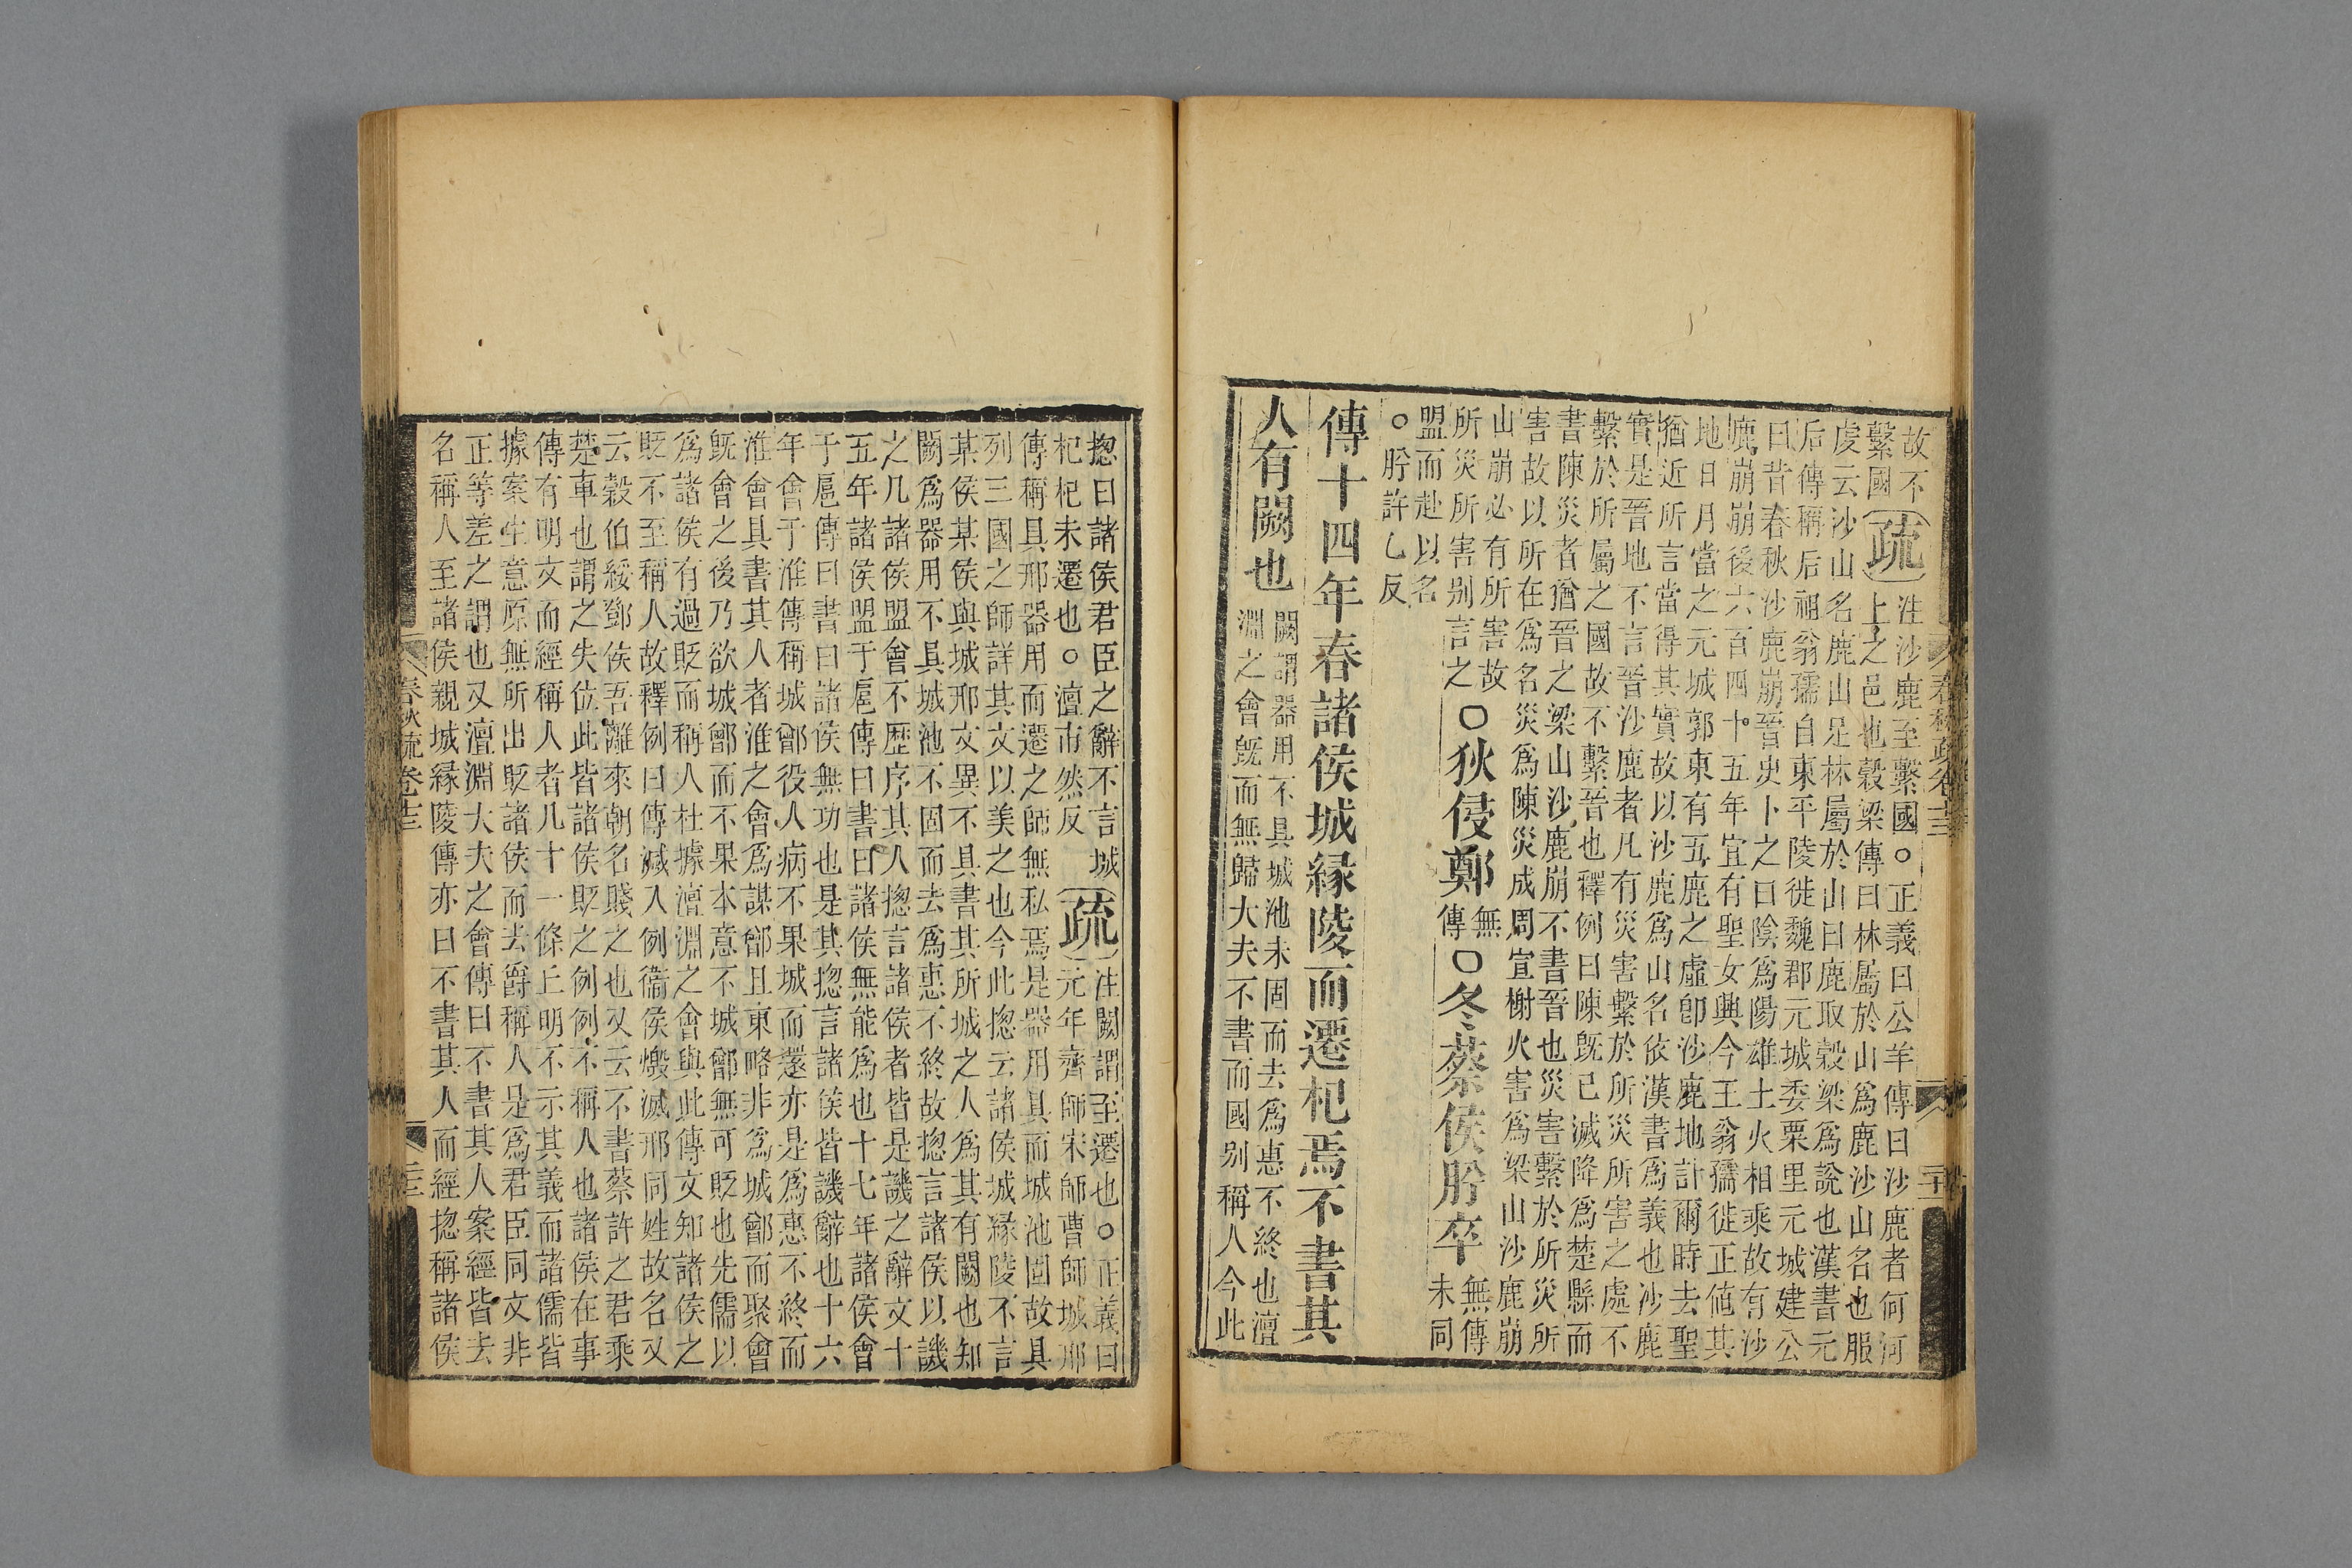 故不
繫國
疏
注沙鹿至繫國○正義曰公羊傳曰沙鹿者何河
上之邑也穀梁傳曰林屬於山爲鹿沙山名也服
虔云沙山名鹿山足林屬於山曰鹿取穀梁爲說也漢書元
后傳稱后祖翁孺自東平陵徙魏郡元城委粟里元城建公
曰昔春秋沙鹿崩晉史卜之曰陰爲陽雄土火相乘故有沙
鹿崩崩後六百四十五年宜有聖女興今王翁孺徙正値其
地日月當之元城郭東有五鹿之虛卽沙鹿地計爾時去聖
猶近所言當得其實故以沙鹿爲山名依漢書爲義也沙鹿
實是晉地不言晉沙鹿者凡有災害繫於所災所害之處不
繫於所屬之國故不繫晉也釋例曰陳旣已滅降爲楚縣而
書陳災者猶晉之梁山沙鹿崩不書晉也災害繫於所災所
害故以所在爲名災爲陳災成周宣榭火害爲梁山沙鹿崩
山崩必有所害故
所災所害别言之
○狄侵鄭
無
傳
○冬蔡侯肸卒
無傳
未同
盟而赴以名
○肸許乙反
傳十四年春諸侯城緣陵而遷杞焉不書其
人有闕也
闕謂器用不具城池未固而去爲惠不終也澶
淵之會旣而無歸大夫不書而國别稱人今此
揔曰諸侯君臣之辭不言城
杞杞未遷也○澶市然反
疏
注闕謂至遷也○正義曰
元年齊師宋師曹師城邢
傳稱具邢器用而遷之師無私焉是器用具而城池固故具
列三國之師詳其文以美之也今此揔云諸侯城緣陵不言
某侯某侯與城邢文異不具書其所城之人爲其有闕也知
闕爲器用不具城池不固而去爲惠不終故揔言諸侯以譏
之凡諸侯盟會不歷序其人揔言諸侯者皆是譏之辭文十
五年諸侯盟于扈傳曰書曰諸侯無能爲也十七年諸侯會
于扈傳曰書曰諸侯無功也是其揔言諸侯皆譏辭也十六
年會于淮傳稱城鄫役人病不果城而還亦是爲惠不終而
淮會具書其人者淮之會爲謀鄫且東略非爲城鄫而聚會
旣會之後乃欲城鄫而不果本意不城鄫無可貶也先儒以
爲諸侯有過貶而稱人杜據澶淵之會與此傳文知諸侯之
貶不至稱人故釋例曰傳滅入例衞侯燬滅邢同姓故名又
云穀伯綏鄧侯吾離來朝名賤之也又云不書蔡許之君乘
楚車也謂之失位此皆諸侯貶之例例不稱人也諸侯在事
傳有明文而經稱人者凡十一條丘明不示其義而諸儒皆
據案生意原無所出貶諸侯而去爵稱人是爲君臣同文非
正等差之謂也又澶淵大夫之會傳曰不書其人案經皆去
名稱人至諸侯親城緣陵傳亦曰不書其人而經揔稱諸侯
春秋疏卷十三